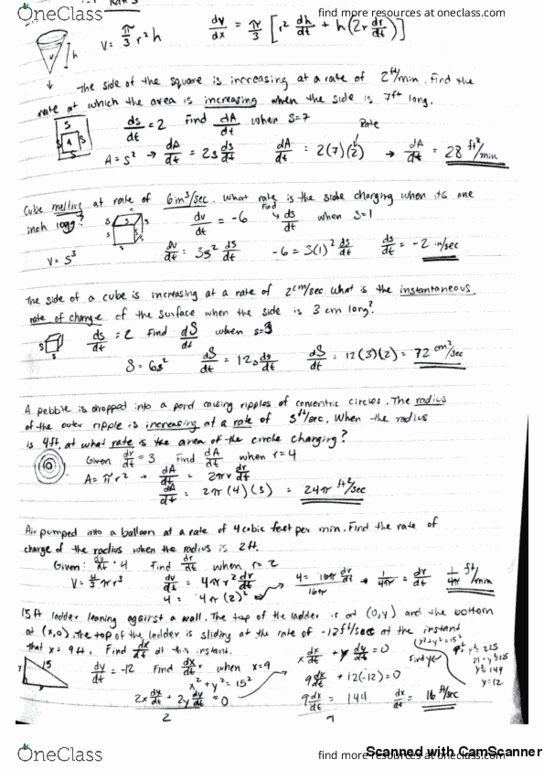 OneClass
find more resources at oneclass.com
V = π/3 r²h
dv/dx = π/3 [r² dh/dt + h(2r dr/dt)]
The side of the square is increasing at a rate of 2 ft/min. Find the
rate at which the area is increasing when the side is 7ft long.
ds/dt = 2 Find dA/dt when S=7
Rate
A = s² → dA/dt = 2s ds/dt dA/dt = 2(7)(2) → dA/dt = 28 ft²/min
Cube melting at rate of 6in³/sec. What rate is the side charging when its one
inch long?
dv/dt = -6 Find ds/dt when s=1
V = s³ dv/dt = 3s² ds/dt -6 = 3(1)² ds/dt ds/dt = -2 in/sec
The side of a cube is increasing at a rate of 2cm/sec what is the instantaneous
rate of change of the surface when the side is 3 cm long?
ds/dt = 2 Find dS/dt when s=3
S = 6s² dS/dt = 12s ds/dt dS/dt = 12(3)(2) = 72 cm²/sec
A pebble is dropped into a pond causing ripples of concentric circles. The radius
of the outer ripple is increasing at a rate of 3ft/sec. When the radius
is 4ft. at what rate is the area of the circle charging?
Given dr/dt = 3 Find dA/dt when r=4
A = πr² → dA/dt = 2πr dr/dt
dA/dt = 2π(4)(3) = 24π ft²/sec
Air pumped into a balloon at a rate of 4 cubic feet per min. Find the rate of
charge of the radius when the radius is 2ft.
Given: dv/dt = 4 Find dr/dt when r=2
V = 4/3 πr³ dv/dt = 4πr² dr/dt 4 = 16π dr/dt → 1/4π = dr/dt 1/4π ft/min
4 = 4π(2)² 16π
15ft ladder leaning against a wall. The top of the ladder is at (0,y) and the bottom
at (x,0). The top of the ladder is sliding at the rate of -12ft/sec at the instant
that x = 9ft. Find dx/dt at this instant.
dy/dt = -12 Find dx/dt when x=9
x² + y² = 15²
2x dx/dt + 2y dy/dt = 0
2
x dx/dt + y dy/dt = 0
9 dx/dt + 12(-12) = 0
9 dx/dt = 144 dx/dt = 16 ft/sec
9
Find y
x²+y²=15²
y² = 144
y=12
Scanned with CamScanner
OneClass
find more resources at oneclass.com